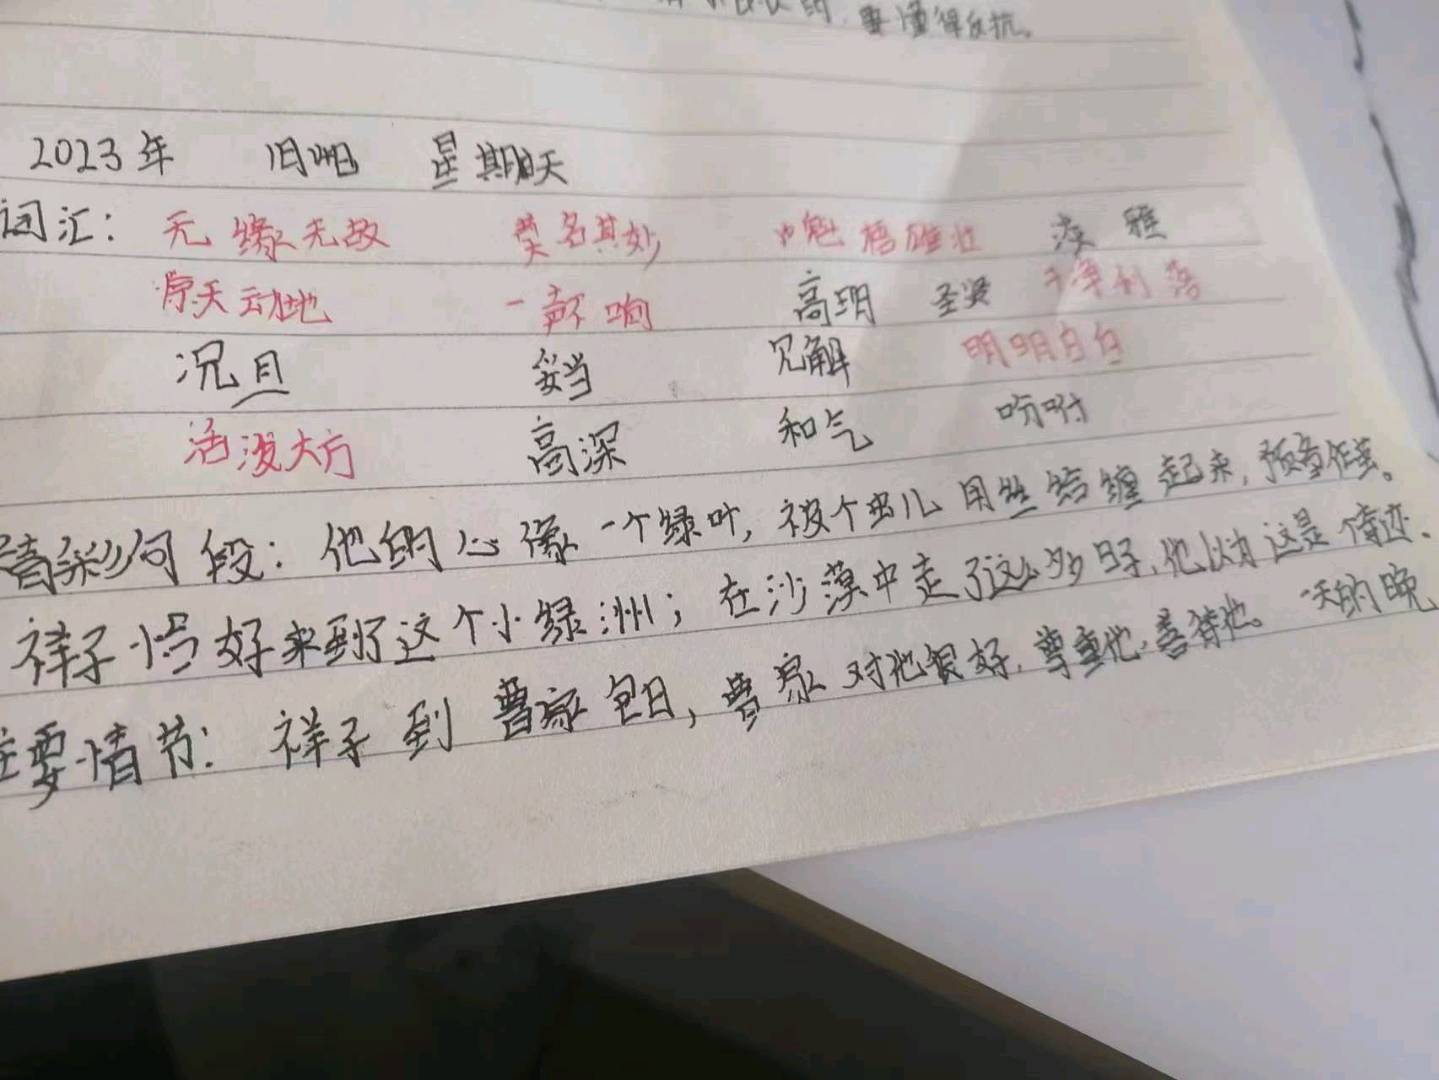 要懂得反抗。
2023年 1月14日 星期天
词汇： 无缘无故 莫名其妙 魁梧雄壮 淡雅
惊天动地 一声不响 高明 圣贤 干净利落
况且 妥当 见解 明明白白
活泼大方 高深 和气 吩咐
精彩句段：他的心像一个绿叶，被个虫儿用丝给缠起来，预备作茧。
祥子恰好来到了这个小绿洲；在沙漠中走了这么多日子，他以为这是奇迹.
主要情节：祥子到曹家包月，曹家对他很好，尊重他，善待他。一天的晚